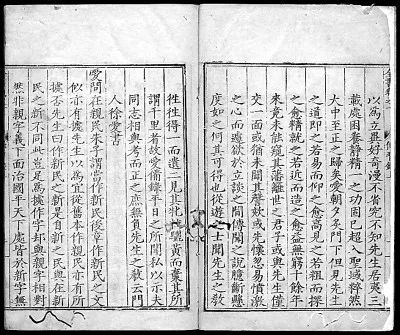 以為立異好奇漫不省究不知先生居夷三
載處困養靜精一之功固已超入聖域粹然
大中至正之歸矣愛朝夕炙門下但見先生
之道即之若易而仰之愈高見之若粗而探
之愈精就之若近而造之愈益無窮十餘年
來竟未能窺其藩籬世之君子或與先生僅
交一面或猶未聞其謦欬或先懷忽易憤激
之心而遽欲於立談之間傳聞之說臆斷懸
度如之何其可得也從遊之士聞先生之教
徃徃得一而遺二見其牝牡驪黃而棄其所
謂千里者故愛備錄平日之所聞私以示夫
同志相與考而正之庶無負先生之教云門
人徐愛書
愛問在親民朱子謂當作新民後章作新民之文
似亦有據先生以為宜從舊本作親民亦有所
據否先生曰作新民之新是自新之民與在新
民之新不同此豈足為據作字却與親字相對
然非親字義下面治國平天下處皆於新字無